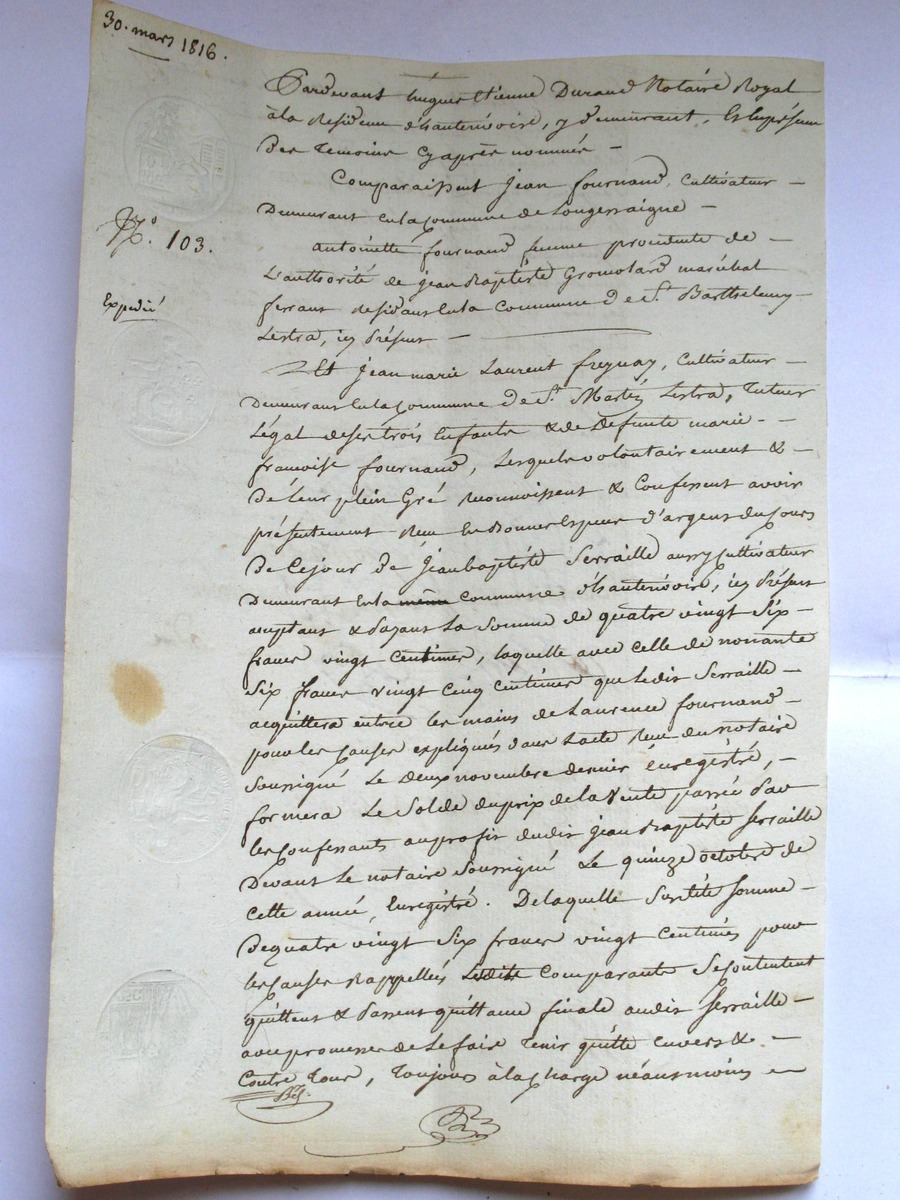 30. mars 1816.
Pardevant hugues Etienne Durand Notaire Royal
à la Residence d'hauterivoire, y demeurant, Et en présence
Des Temoins Cy après nommés —
Comparaissent Jean fournand, Cultivateur —
Demeurant en la Commune de Longessaigne —
N.º 103.
antoinette fournand femme procedente de —
L'authorité de jean Baptiste Gromolard maréchal
Expedié
ferrant residant en la Commune de St. Barthelemy
Lestra, icy présent —
Et jean marie Laurent freynay, Cultivateur —
Demeurant en la Commune de St. Martin Lestra, Tuteur
Légal de ses trois Enfants & de Defunte marie —
françoise fournand, Lesquels volontairement & —
De leur plein Gré reconnoissent & Confessent avoir
présentement reçu En Bonnes Especes d'argent du Cours
De Ce jour de jean baptiste Serraille aussy Cultivateur
Demeurant en la même Commune d'hauterivoire, icy présent
acceptant & payant La Somme de quatre vingt Six —
francs vingt Centimes, laquelle avec celle de nonante
Six francs vingt Cinq Centimes que ledit Serraille —
acquittera entre les mains de Laurence fournand —
pour les Causes expliqués dans l'acte reçu du notaire
Soussigné Le Deux novembre dernier énregistré, —
formera Le Solde du prix de la Vente passée par
les Confessants au profit dudit jean Baptiste Serraille
Devant Le notaire Soussigné Le quinze octobre de
Cette année, Enregistré. De laquelle Susdite Somme —
De quatre vingt Six francs vingt Centimes pour
les Causes Rappellées Lesdits Comparants Se Contentent
quittent & passent quittance finale audit Serraille —
avec promesse de Le faire Tenir quitte Envers & —
Contre Tous, Toujours à la Charge néanmoins